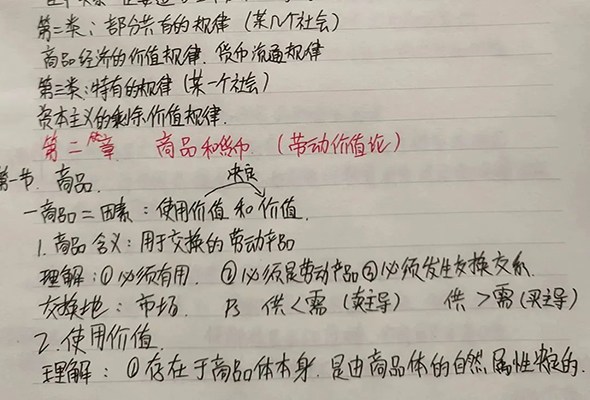 第二类：部分共有的规律（某几个社会）
商品经济的价值规律．货币流通规律
第三类：特有的规律（某一个社会）
资本主义的剩余价值规律．
第二章 商品和货币（劳动价值论）
第一节．商品．
决定
一商品二因素：使用价值和价值．
1．商品含义：用于交换的劳动产品
理解：①必须有用．②必须是劳动产品③必须发生交换关系．
交换地：市场． Ps 供<需（卖主导） 供>需（买主导）
2．使用价值．
理解：①存在于商品体本身．是由商品体的自然属性决定的．